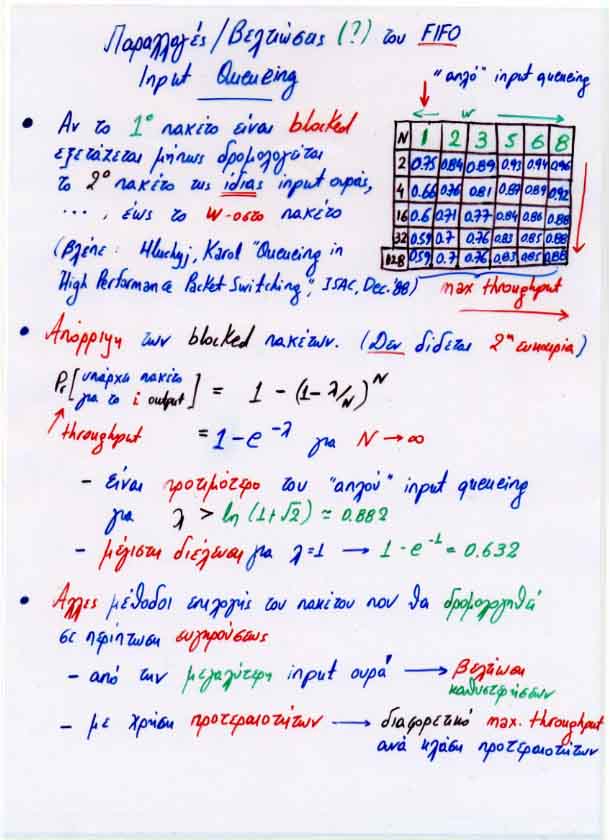 Παραλλαγές / Βελτιώσεις (?) του FIFO
Input Queueing
"απλό" input queueing
w
N 1 2 3 5 6 8
2 0.75 0.84 0.89 0.93 0.94 0.96
4 0.66 0.76 0.81 0.87 0.89 0.92
16 0.6 0.71 0.77 0.84 0.86 0.88
32 0.59 0.7 0.76 0.83 0.85 0.88
128 0.59 0.7 0.76 0.83 0.85 0.88
max throughput
• Αν το 1º πακέτο είναι blocked
εξετάζεται μήπως δρομολογείται
το 2º πακέτο της ίδιας input ουράς,
..., έως το w-οστο πακέτο
(βλέπε: Hluchyj, Karol "Queueing in
High Performance Packet Switching", JSAC, Dec. '88)
• Απόρριψη των blocked πακέτων. (Δεν δίδεται 2η ευκαιρία)
Pr[υπάρχει πακέτο για το i output] = 1 - (1-λ/N)^N
throughput = 1 - e^-λ για N → ∞
- είναι προτιμότερο του "απλού" input queueing
για λ > ln (1+√2) ≈ 0.882
- μέγιστη διέλευση για λ=1 → 1 - e^-1 = 0.632
• Αλλες μέθοδοι επιλογής του πακέτου που θα δρομολογηθεί
σε περίπτωση συγκρούσεως
- από την μεγαλύτερη input ουρά → βελτίωση
καθυστερήσεων
- με χρήση προτεραιοτήτων → διαφορετικό max. throughput
ανά κλάση προτεραιοτήτων